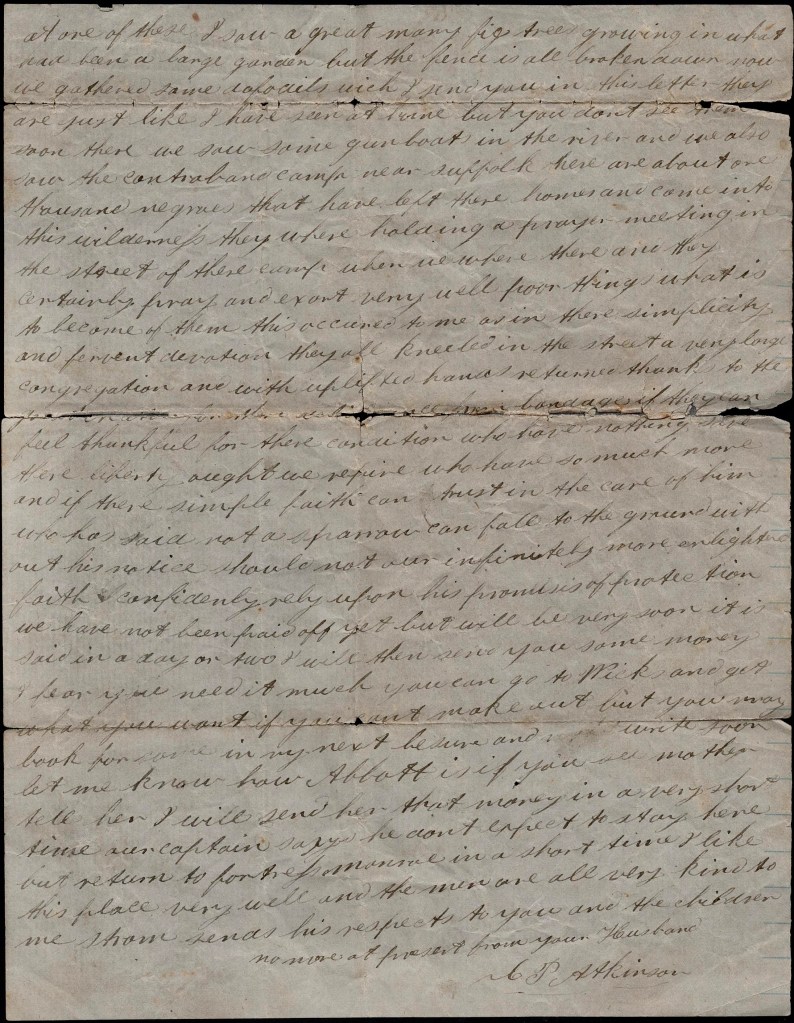 at one of these I saw a great many fig trees growing in what
had been a large garden but the fence is all broken down now
we gathered some dafodils wich I send you in this letter they
are just like I have seen at home but you dont see them
soon there we saw some gunboats in the river and we also
saw the contraband camp near suffolk here are about one
thousand negroes that have left there homes and come into
this wilderness they where holding a prayer meeting in
the street of there camp when we where there and they
certainly pray and exort very well poor things what is
to become of them this occured to me as in there simplicity
and fervent devotion they all kneeled in the street a very large
congregation and with uplifted hands returned thanks to the
for there from bondage if they can
feel thankful for there condition who have nothing save
there liberty ought we repine who have so much more
and if there simple faith can trust in the care of him
who has said not a sparrow can fall to the ground with
out his notice should not our infinitely more enlightened
faith confidenly rely upon his promisis of protection
we have not been paid off yet but will be very soon it is
said in a day or two I will then send you some money
I hear you need it much you can go to Wicks and get
what you want if you cant make out but you may
look for some in my next be sure and write soon
let me know how Abbott is if you see mother
tell her I will send her that money in a very short
time our captain says he dont expect to stay here
but return to fortress monroe in a short time I like
this place very well and the men are all very kind to
me strom sends his respects to you and the children
no more at present from your Husband
C P Atkinson